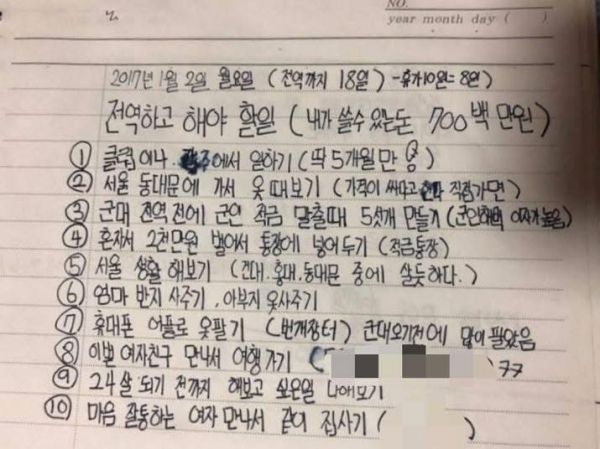 NO.
year month day ( )
2017년 1월 2일 월요일 ( 전역까지 18일 ) - 휴가10일 = 8일)
전역하고 해야 할일 ( 내가 쓸수 있는돈 700백 만원 )
① 클럽이나 에서 일하기 (딱 5개월만 용)
② 서울 동대문에 가서 옷 때보기 (가격이 싸다고 직접가면)
③ 군대 전역 전에 군인 적금 말출때 5섯개 만들기 (군인혜택 이자가 높음)
④ 혼자서 2천만원 벌어서 통장에 넣어두기 (적금통장)
⑤ 서울 생활 해보기 (건대, 홍대, 동대문 중에 살듯하다.)
⑥ 엄마 반지 사주기, 아부지 옷사주기
⑦ 휴대폰 어플로 옷팔기 (번개장터) 군대오기전에 많이 팔았음
⑧ 이쁜 여자친구 만나서 여행가기 ( ) 굿
⑨ 24살 되기 전까지 해보고 싶은일 다해보기
⑩ 마음 잘통하는 여자 만나서 같이 집사기 ( )